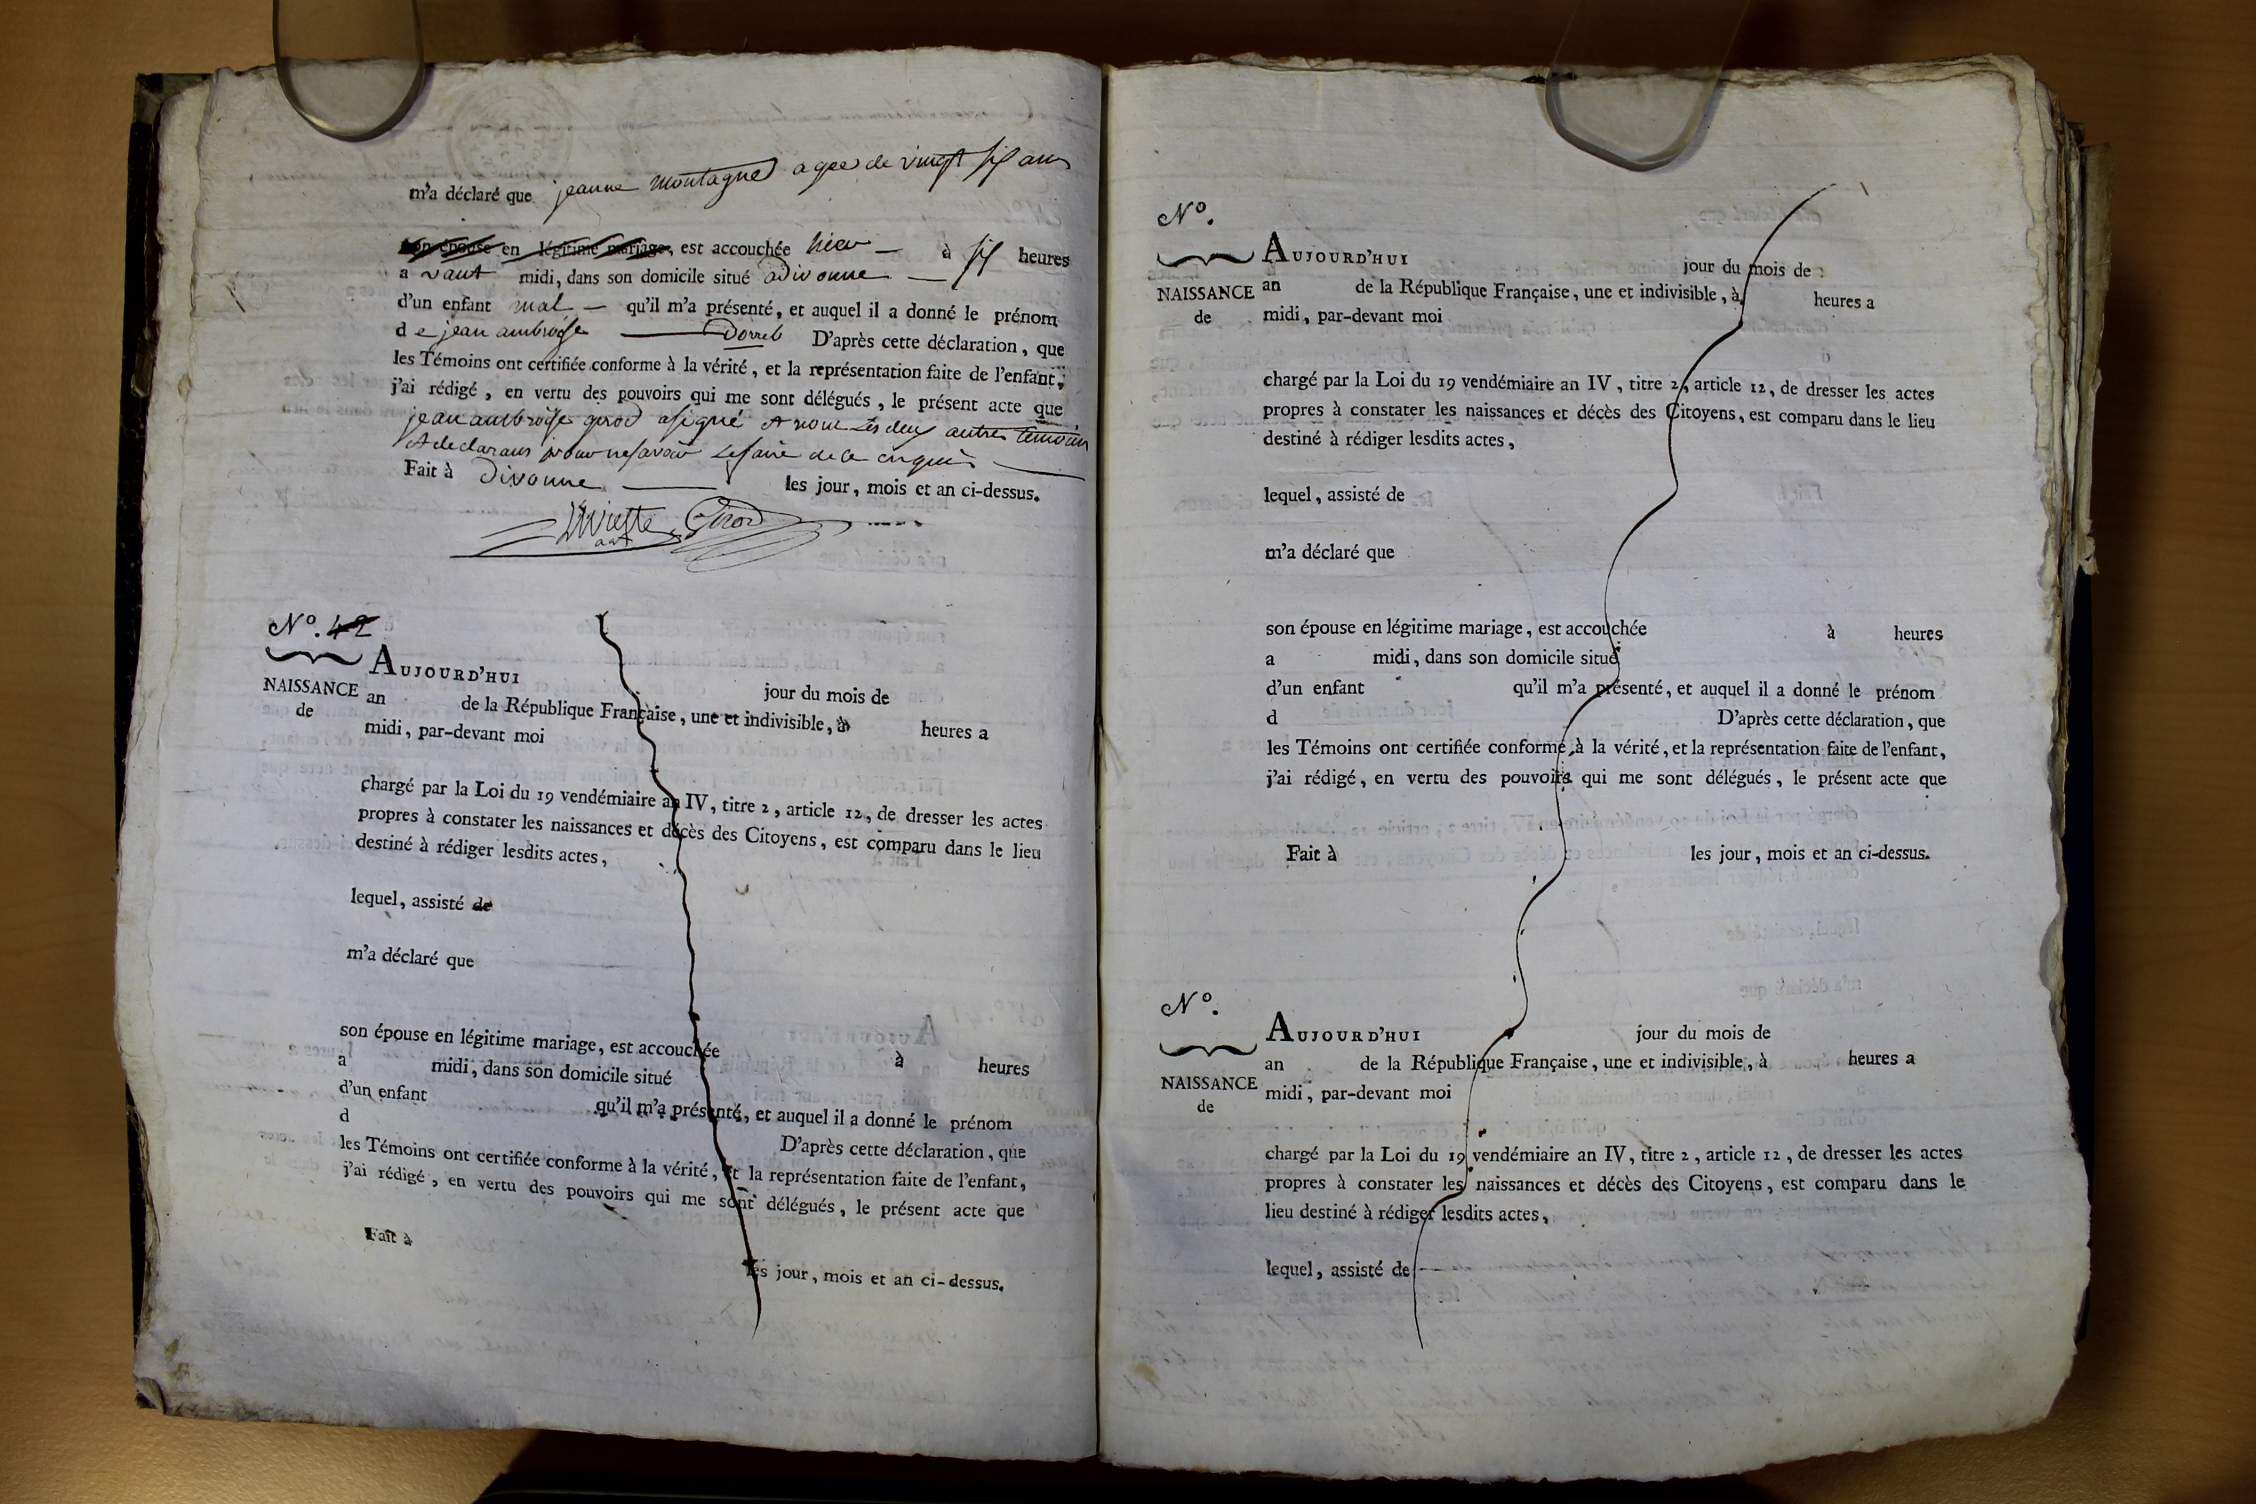 m'a déclaré que jeanne montagne agee de vingt six ans
son épouse en légitime mariage, est accouchée hier à six heures
avant midi, dans son domicile situé a divonne
d'un enfant mal qu'il m'a présenté, et auquel il a donné le prénom
de jean ambroise D'après cette déclaration, que
les Témoins ont certifiée conforme à la vérité, et la représentation faite de l'enfant,
j'ai rédigé, en vertu des pouvoirs qui me sont délégués, le présent acte que
jean ambroise girod a signé et non les deux autres temoin
et declarans pour ne savoir le faire de ce enquis
Fait à divonne les jour, mois et an ci-dessus.
Girod
N°. 42
AUJOURD'HUI jour du mois de
NAISSANCE
de
an de la République Française, une et indivisible, à heures a
midi, par-devant moi
chargé par la Loi du 19 vendémiaire an IV, titre 2, article 12, de dresser les actes
propres à constater les naissances et décès des Citoyens, est comparu dans le lieu
destiné à rédiger lesdits actes,
lequel, assisté de
m'a déclaré que
son épouse en légitime mariage, est accouchée à heures
a midi, dans son domicile situé
d'un enfant qu'il m'a présenté, et auquel il a donné le prénom
d D'après cette déclaration, que
les Témoins ont certifiée conforme à la vérité, et la représentation faite de l'enfant,
j'ai rédigé, en vertu des pouvoirs qui me sont délégués, le présent acte que
Fait à les jour, mois et an ci-dessus.
N°.
AUJOURD'HUI jour du mois de
NAISSANCE
de
an de la République Française, une et indivisible, à heures a
midi, par-devant moi
chargé par la Loi du 19 vendémiaire an IV, titre 2, article 12, de dresser les actes
propres à constater les naissances et décès des Citoyens, est comparu dans le lieu
destiné à rédiger lesdits actes,
lequel, assisté de
m'a déclaré que
son épouse en légitime mariage, est accouchée à heures
a midi, dans son domicile situé
d'un enfant qu'il m'a présenté, et auquel il a donné le prénom
d D'après cette déclaration, que
les Témoins ont certifiée conforme à la vérité, et la représentation faite de l'enfant,
j'ai rédigé, en vertu des pouvoirs qui me sont délégués, le présent acte que
Fait à les jour, mois et an ci-dessus.
N°.
AUJOURD'HUI jour du mois de
NAISSANCE
de
an de la République Française, une et indivisible, à heures a
midi, par-devant moi
chargé par la Loi du 19 vendémiaire an IV, titre 2, article 12, de dresser les actes
propres à constater les naissances et décès des Citoyens, est comparu dans le
lieu destiné à rédiger lesdits actes,
lequel, assisté de